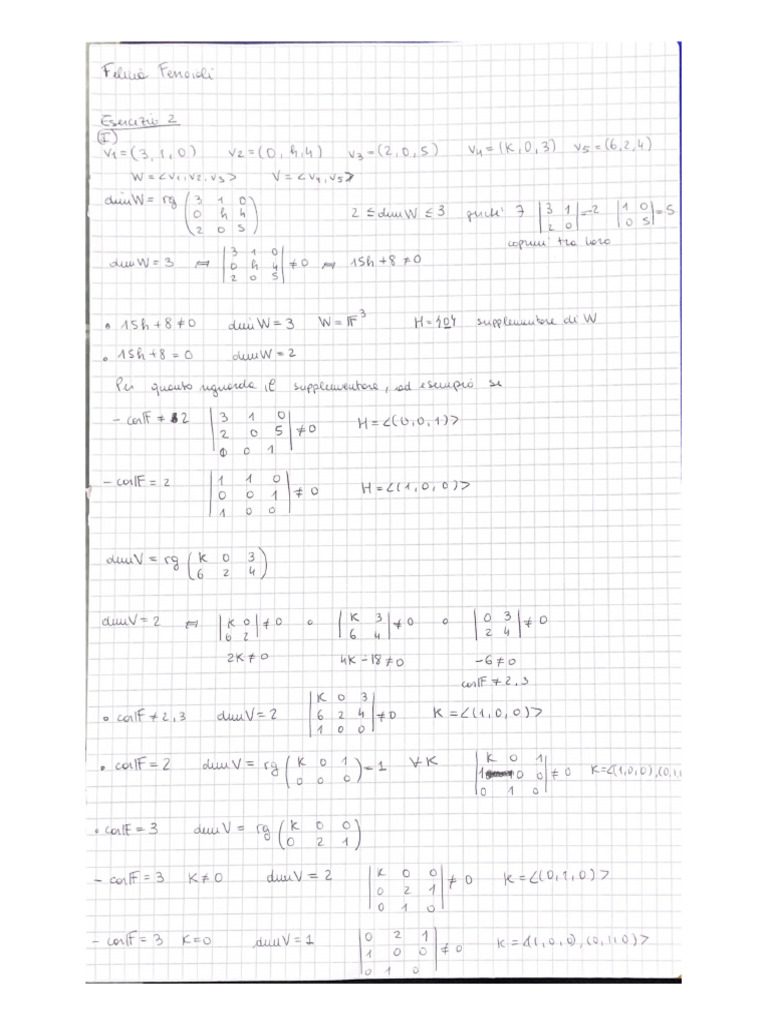 Esercizio 2
(I)
v1=(3,1,0) v2=(0,h,4) v3=(2,0,5) v4=(K,0,3) v5=(6,2,4)
W=<v1,v2,v3> V=<v4,v5>
dimW = rg (3 1 0
0 h 4
2 0 5) 2 ≤ dimW ≤ 3 |3 1
2 0| =-2 |1 0
0 5| =5
coprimi tra loro
dimW=3 ⇔ |3 1 0
0 h 4
2 0 5| ≠0 ⇔ 15h+8≠0
• 15h+8≠0 dimW=3 W=F³ H={0} supplementare di W
• 15h+8=0 dimW=2
Per quanto riguarda il supplementare, ad esempio se
- carF≠2 |3 1 0
2 0 5
0 0 1| ≠0 H=<(0,0,1)>
- carF=2 |1 1 0
0 0 1
1 0 0| ≠0 H=<(1,0,0)>
dimV = rg (K 0 3
6 2 4)
dimV=2 ⇔ |K 0
6 2| ≠0 o |K 3
6 4| ≠0 o |0 3
2 4| ≠0
2K≠0 4K-18≠0 -6≠0
carF≠2,3
• carF≠2,3 dimV=2 |K 0 3
6 2 4
1 0 0| ≠0 K=<(1,0,0)>
• carF=2 dimV=rg (K 0 1
0 0 0) =1 ∀K |K 0 1
1 0 0
0 1 0| ≠0 K=<(1,0,0),(0,1,
• carF=3 dimV=rg (K 0 0
0 2 1)
- carF=3 K≠0 dimV=2 |K 0 0
0 2 1
0 1 0| ≠0 K=<(0,1,0)>
- carF=3 K=0 dimV=1 |0 2 1
1 0 0
0 1 0| ≠0 K=<(1,0,0),(0,1,0)>